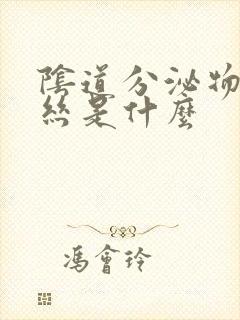 陰道分泌物
絲是什麼
馮會玲